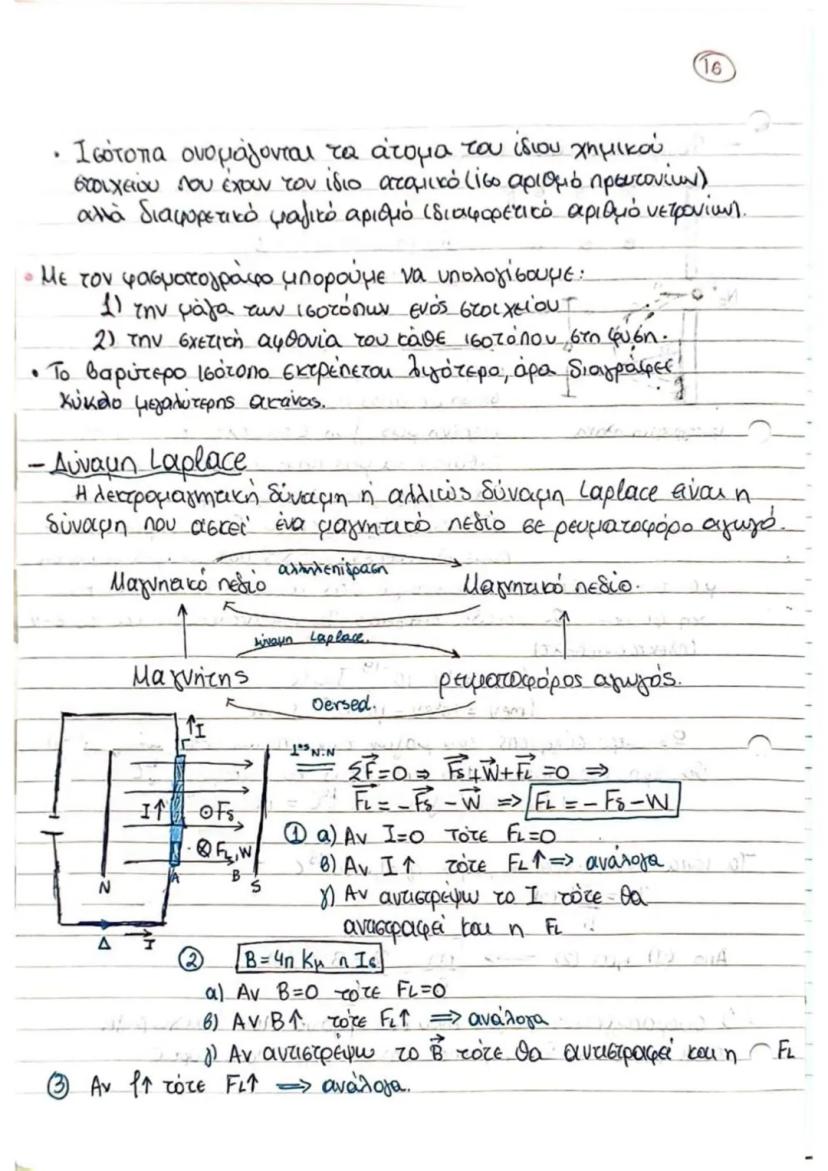 16
• Ισότοπα ονομάζονται τα άτομα του ίδιου χημικού
στοιχείου που έχουν τον ίδιο ατομικό (ίσο αριθμό πρωτονίων)
αλλά διαφορετικό μαζικό αριθμό (διαφορετικό αριθμό νετρονίων).
• Με τον φασματογράφο μπορούμε να υπολογίσουμε:
1) την μάζα των ισοτόπων ενός στοιχείου
2) την σχετική αφθονία του κάθε ισοτόπου στη φύση.
• Το βαρύτερο ισότοπο εκτρέπεται λιγότερο, άρα διαγράφει
κύκλο μεγαλύτερης ακτίνας.
- Δύναμη Laplace
Ηλεκτρομαγνητική δύναμη ή αλλιώς δύναμη Laplace είναι η
δύναμη που ασκεί ένα μαγνητικό πεδίο σε ρευματοφόρο αγωγό.
αλληλεπίδραση
Μαγνητικό πεδίο Μαγνητικό πεδίο.
δύναμη Laplace.
Μαγνήτης ρευματοφόρος αγωγός.
Oersed.
↑I
Γ
I↑ ⊙Fδ
⊗ FL, W
N A B S
Δ I
1ος N.N ΣF=0 ⇒ Fδ+W+FL=0 ⇒
FL = - Fδ - W ⇒ FL = - Fδ - W
① α) Αν I=0 τότε FL=0
β) Αν I↑ τότε FL↑ ⇒ ανάλογα
γ) Αν αντιστρέψω το I τότε θα
αντιστραφεί και η FL
② B=4π Κμ n Iς
α) Αν B=0 τότε FL=0
β) Αν B↑ τότε FL↑ ⇒ ανάλογα
γ) Αν αντιστρέψω το B τότε θα αντιστραφεί και η FL
③ Αν l↑ τότε FL↑ ⇒ ανάλογα.